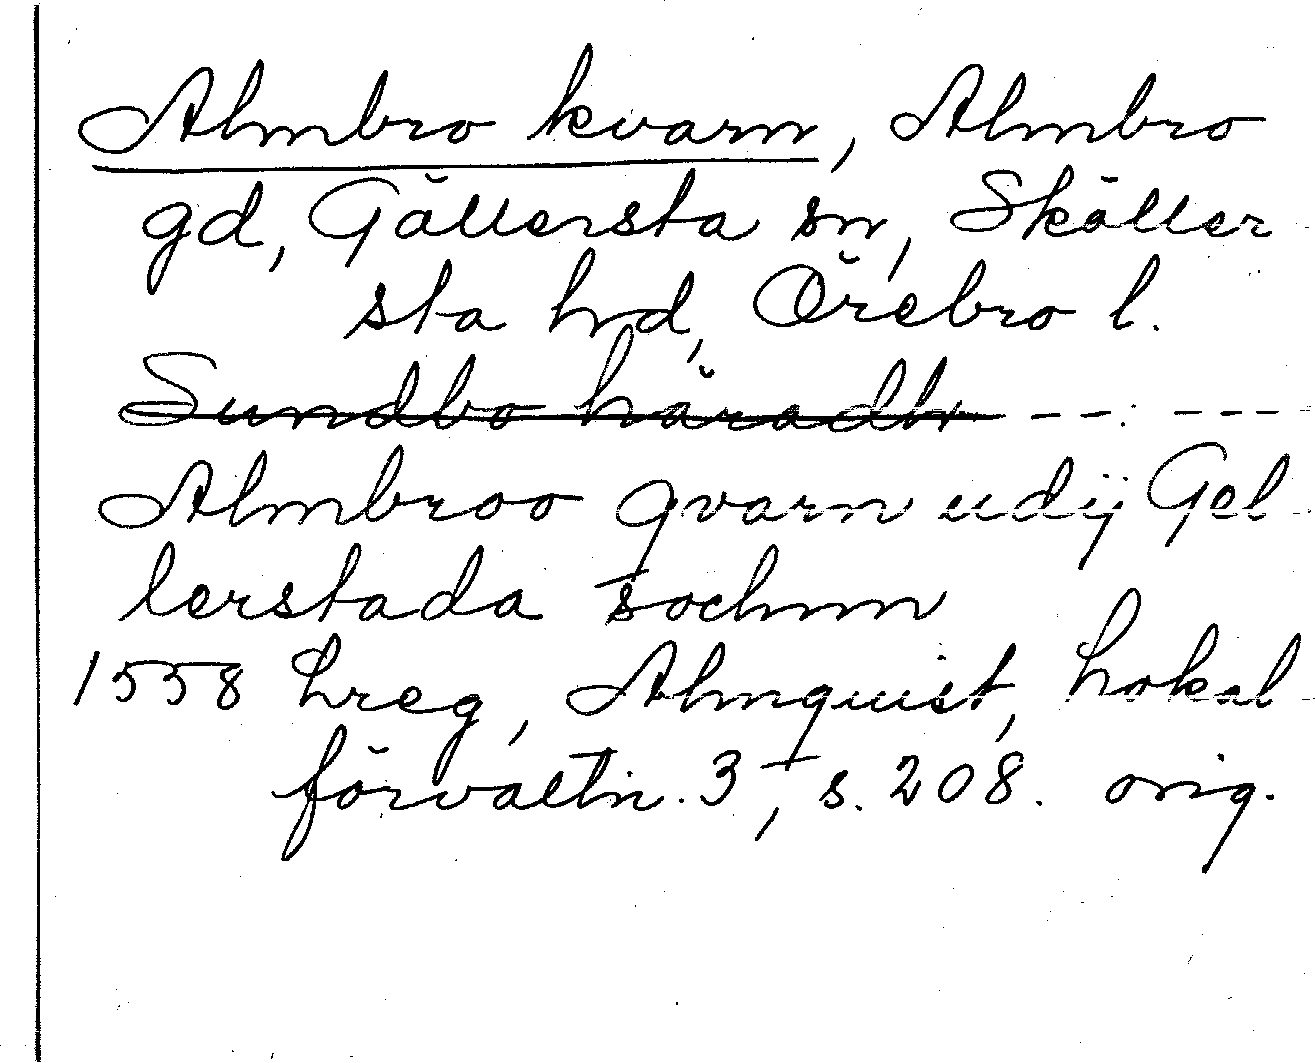 Almbro kvarn, Almbro
gd, Gällersta sn, Sköller
sta hd, Örebro l.
Sundbo häradh - - - : - - -
Almbroo qvarn udij Gel
lerstada sochnn
1558 Lreg, Almquist, Lokal
förvaltn. 3, s. 208. orig.